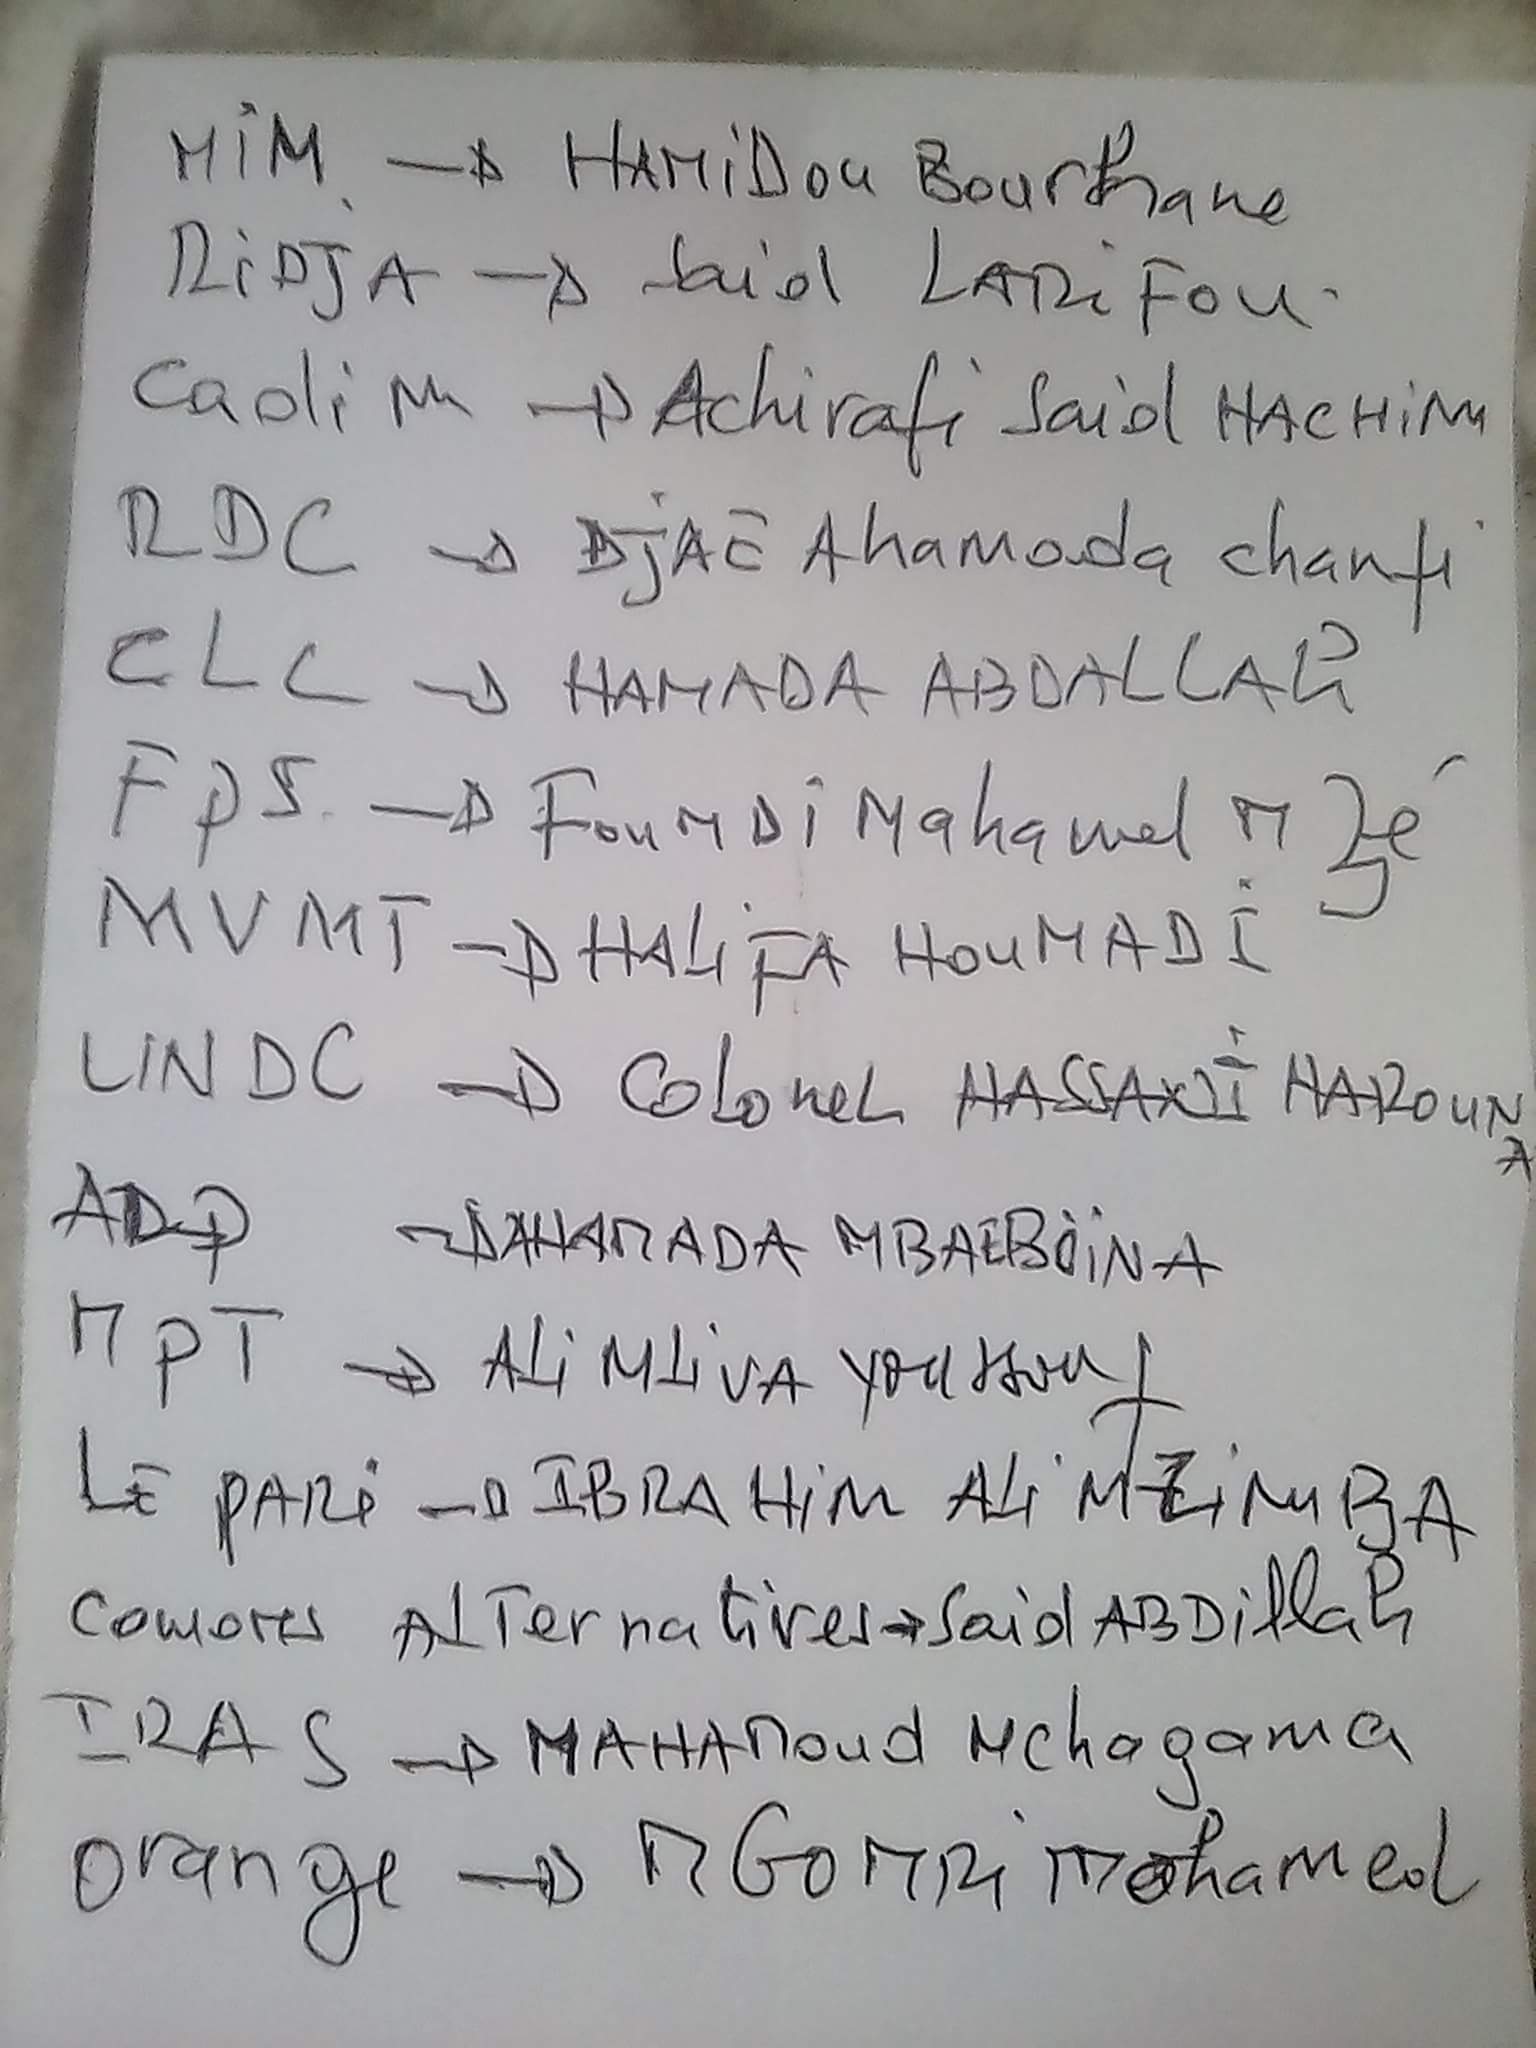 MiM → HAMiDou Bourhane
RiDjA → Said LARiFou.
Cadim → Achirafi Said HACHiM
RDC → DjAE Ahamada chanfi
CLC → HAMADA ABDALLAh
FpS. → FouMDi Mohamed MZé
MVMT → HALiFA HouMADI
LiNDC → Colonel HASSANI HAROUNA
ADP → DAHAMADA MBAEBOiNA
MPT → ALi MLiVA Youssouf
LE PARi → IBRAHiM ALi MZiMBA
Comores ALTernatives → Said ABDillah
IRAS → MAHAMoud Mchagama
Orange → MGOMRi Mohamed